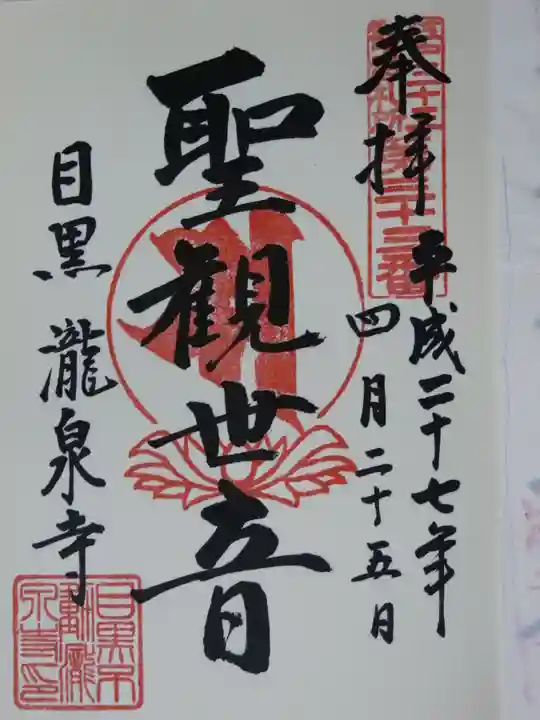 奉拝
平成二十七年
四月二十五日
聖觀世音
目黒 瀧泉寺